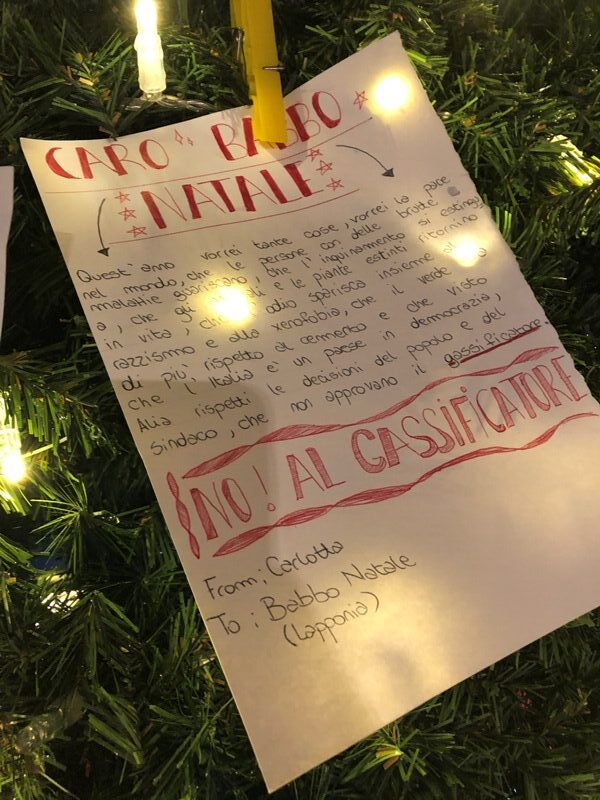 CARO BABBO
NATALE
Quest'anno vorrei tante cose, vorrei la pace
nel mondo, che le persone con delle brutte
malattie guariscano, che l'inquinamento si estingu
a, che gli e le piante estinti ritornino
in vita, che odio sparisca insieme al
razzismo e alla xenofobia, che il verde
di più rispetto al cemento e che visto
che l'Italia e' un paese in democrazia,
Alia rispetti le decisioni del popolo e del
sindaco, che non approvano il gassificatore.
NO! AL GASSIFICATORE
From: Carlotta
To: Babbo Natale
(Lapponia)